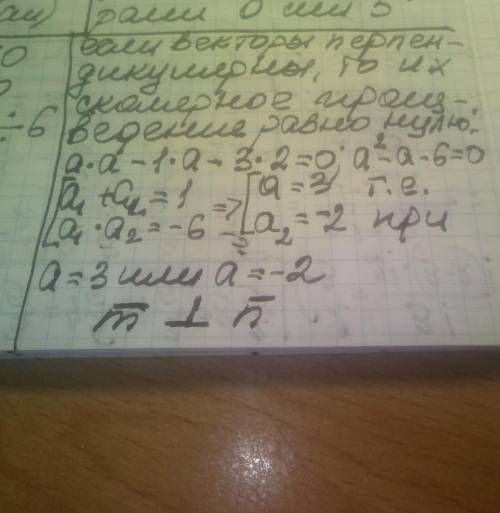 рами 0 или 5
0
÷6
если векторы перпен-
дикулярны, то их
скалярное произ-
ведение равно нулю:
a·a-1·a-3·2=0; a²-a-6=0
[a₁+a₂=1 => [a=3 т.е.
[a₁·a₂=-6 [a₂=-2 при
a=3 или a=-2
m̅ ⊥ n̅